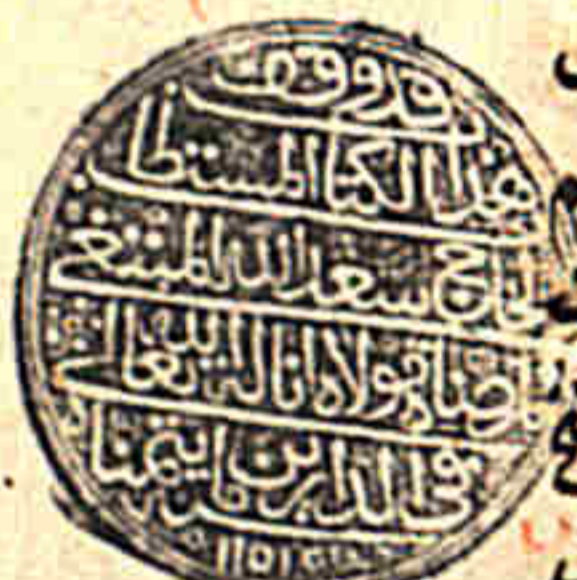 قد وقفت
هذا الكتاب المستطاب
الحاج سعد الله المبتغي
رضاء مولاه اناله الله تعالى
في الدارين ما يتمناه
سنه ١١٥١